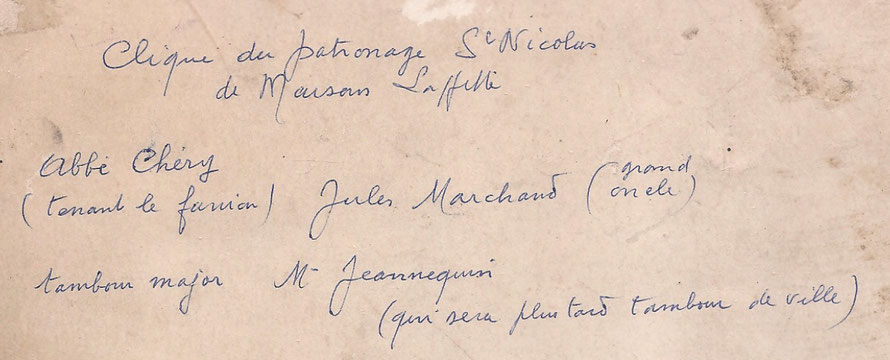 Clique du patronage St Nicolas
de Maisons Laffitte
Abbé Chéry
(tenant le fanion) Jules Marchand (grand oncle)
tambour major Mr Jeannequin
(qui sera plus tard tambour de ville)